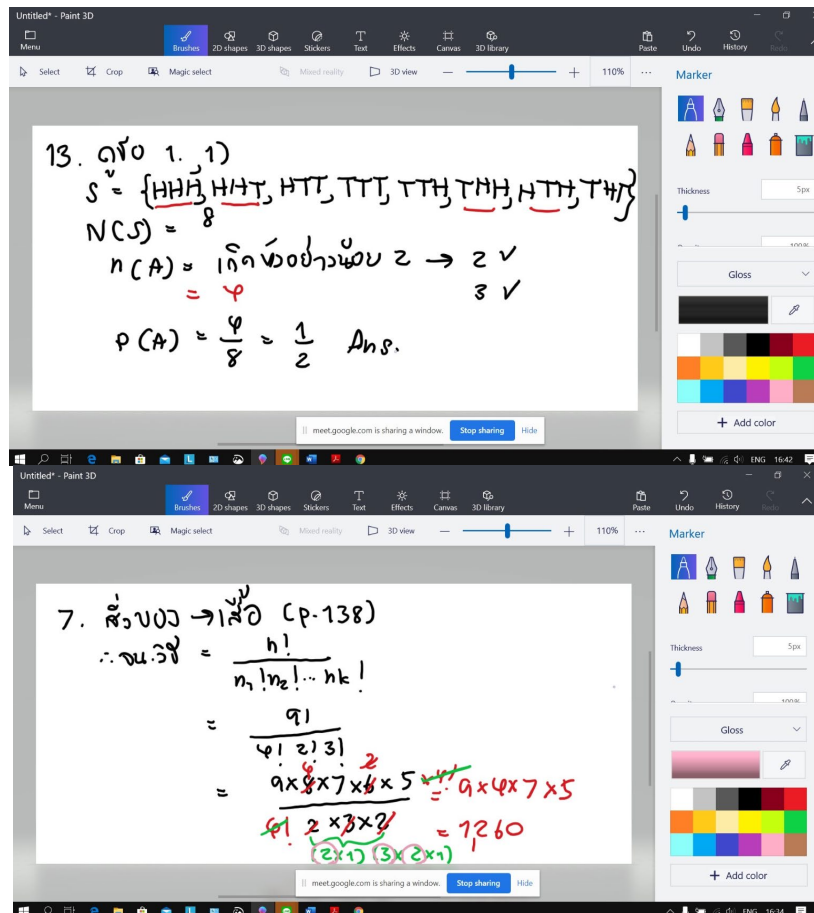 Untitled* - Paint 3D
Menu
Brushes 2D shapes 3D shapes Stickers Text Effects Canvas 3D library Paste Undo History Redo
Select Crop Magic select Mixed reality 3D view 110% ... Marker
13. ดูข้อ 1. 1)
S = {HHH, HHT, HTT, TTT, TTH, THH, HTH, THT}
N(S) = 8
n(A) = เกิดหัวอย่างน้อย 2 → 2 ✓
= 4 3 ✓
P(A) = 4/8 = 1/2 Ans.
Thickness 5px
Gloss
+ Add color
meet.google.com is sharing a window. Stop sharing Hide
ENG 16:42
Untitled* - Paint 3D
Menu
Brushes 2D shapes 3D shapes Stickers Text Effects Canvas 3D library Paste Undo History Redo
Select Crop Magic select Mixed reality 3D view 110% ... Marker
7. สิ่งของ → เสื้อ (P.138)
∴ จน.วิธี = n! / n₁! n₂! ... nk!
= 9! / 4! 2! 3!
= 9×8×7×6×5×4! / 4! 2×3×2 = 9×4×7×5
4 2
(2×1) (3×2×1)
= 1,260
Thickness 5px
Gloss
+ Add color
meet.google.com is sharing a window. Stop sharing Hide
ENG 16:34